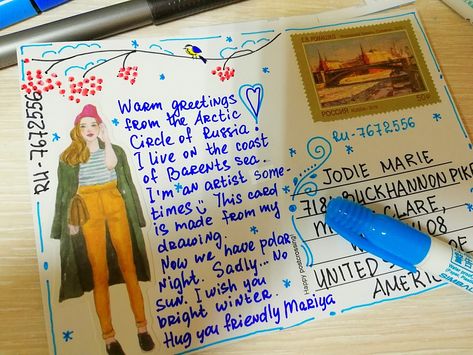 RU-7672556
Warm greetings
from the Arctic
Circle of Russia!
I live on the coast
of Barents sea.
I'm an artist some-
times This card
is made from my
drawing.
Now we have polar
night. Sadly... No
sun. I wish you
bright winter.
Hug you friendly Mariya
РОССИЯ
50
RU-7672556
Happy postcrossing
JODIE MARIE
718 BUCKHANNON PIKE
CLARE,
08
UNITED OF
AMERICA